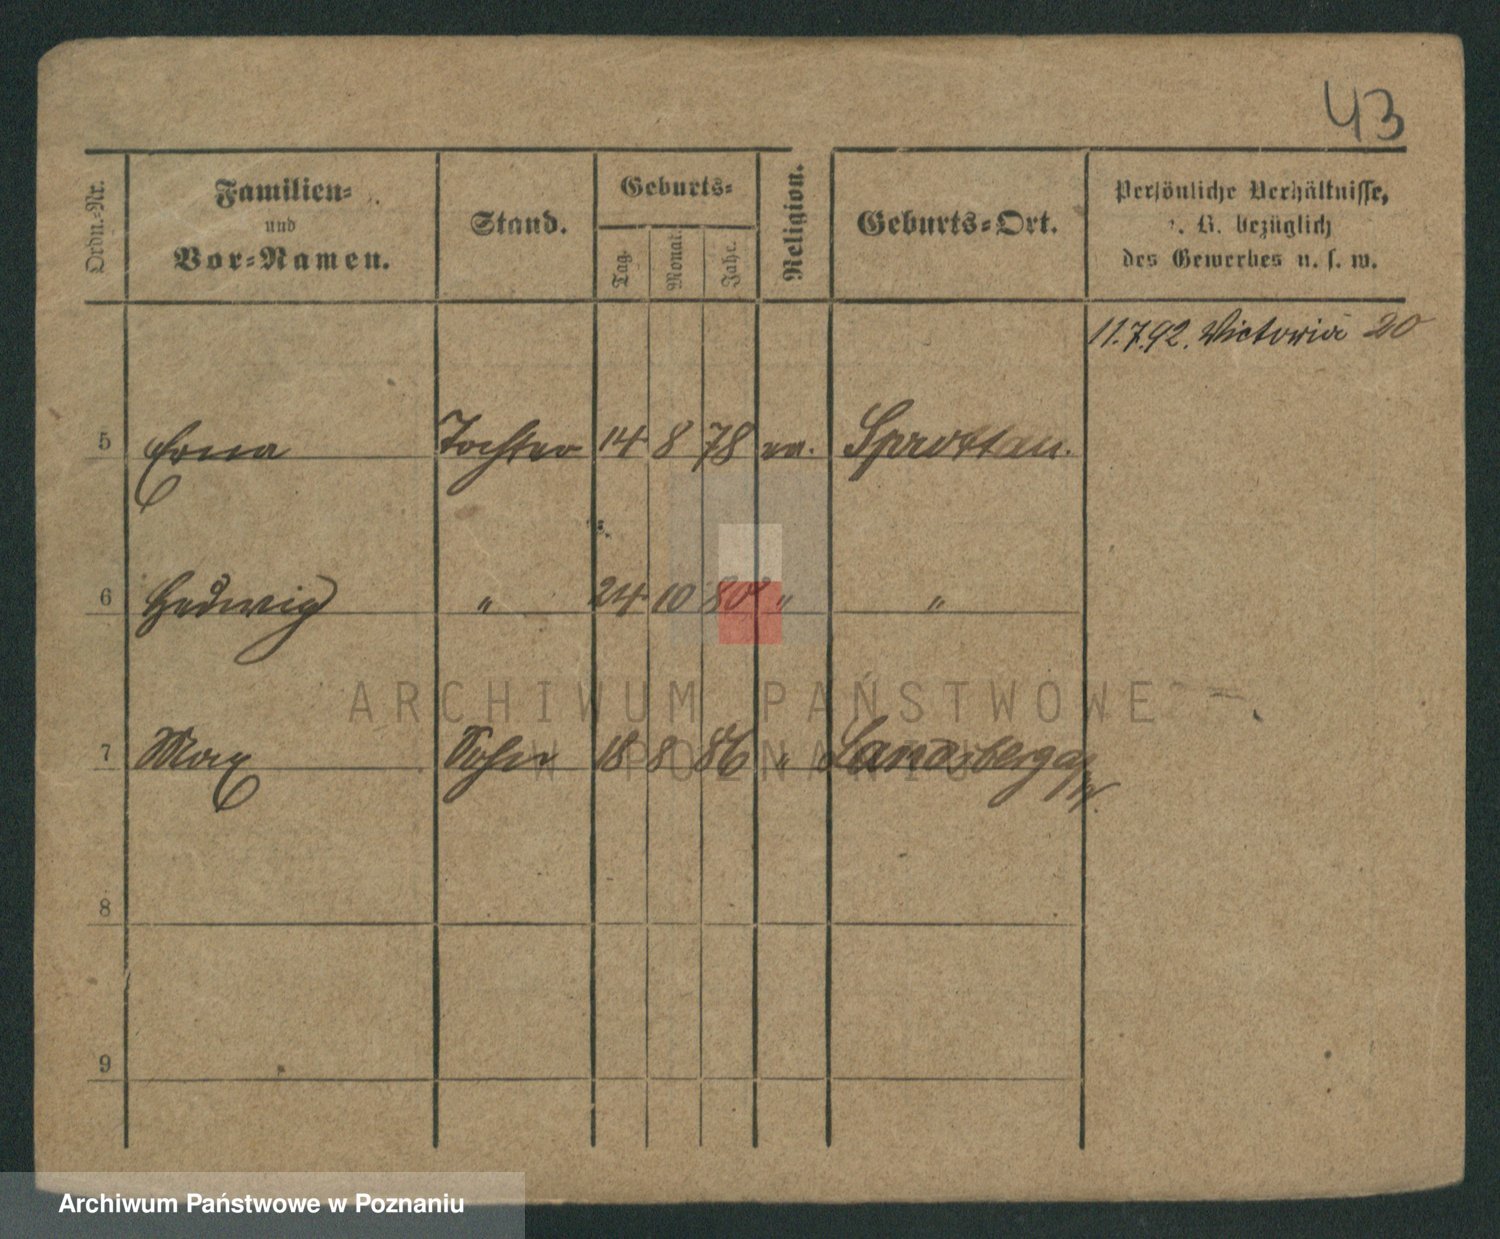 43
Ordn.-Nr.
Familien-
und
Vor-Namen.
Stand.
Geburts-
Tag.
Monat.
Jahr.
Religion.
Geburts-Ort.
Persönliche Verhältnisse,
z. B. bezüglich
des Gewerbes u. s. w.
11.7.92. Victoria 20
5 Erna Tochter 14 8 78 ev. Sprottau.
6 Hedwig " 24 10 80 " "
7 Max Sohn 18 8 86 " Landsberg a/W.
8
9
ARCHIWUM PAŃSTWOWE
W POZNANIU
Archiwum Państwowe w Poznaniu